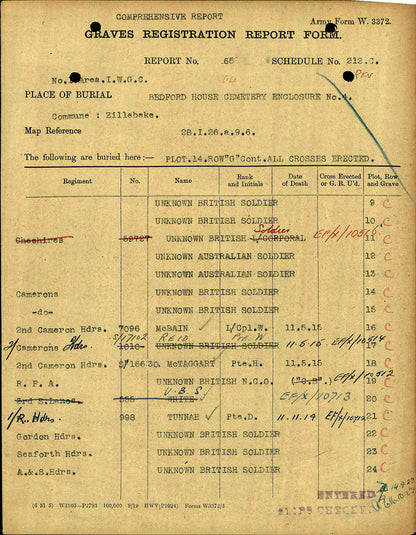 COMPREHENSIVE REPORT
Army Form W. 3372.
GRAVES REGISTRATION REPORT FORM.
REPORT No. 65 SCHEDULE No. 212.C.
No. Area.I.W.G.C. REV
PLACE OF BURIAL BEDFORD HOUSE CEMETERY ENCLOSURE No.4.
Commune : Zillebeke.
Map Reference 28.I.26.a.9.6.
The following are buried here:— PLOT.14.ROW"G"Cont.ALL CROSSES ERECTED.
Regiment No. Name Rank and Initials Date of Death Cross Erected or G. R. U'd. Plot, Row and Grave
UNKNOWN BRITISH SOLDIER 9 C
UNKNOWN BRITISH SOLDIER 10 C
Soldier
Cheshires 59727 UNKNOWN BRITISH L/CORPORAL 11 C
UNKNOWN AUSTRALIAN SOLDIER 12 C
UNKNOWN AUSTRALIAN SOLDIER 13 C
Camerons UNKNOWN BRITISH SOLDIER 14 C
-do- UNKNOWN BRITISH SOLDIER 15 C
2nd Cameron Hdrs. 7096 McBAIN L/Cpl.W. 11.5.15 16 C
S/17102 REID Pte W
2/ Camerons Hdrs. 1010 UNKNOWN BRITISH SOLDIER 11.5.15 EF/X/10514 17 C
2nd Cameron Hdrs. S/16630. McTAGGART Pte.H. 11.5.15 18 C
R. F. A. UNKNOWN BRITISH N.C.O. ("G.P".) EF/X/10512 19 C
U.B.S.
3rd S.Lancs. 355 WHITE EF/X/10713 20 C
1/R. Hdrs. 998 TUNNAH Pte.D. 11.11.14 21 C
Gordon Hdrs. UNKNOWN BRITISH SOLDIER 22 C
Seaforth Hdrs. UNKNOWN BRITISH SOLDIER 23 C
A.&S.Hdrs. UNKNOWN BRITISH SOLDIER 24 C
ENTERED